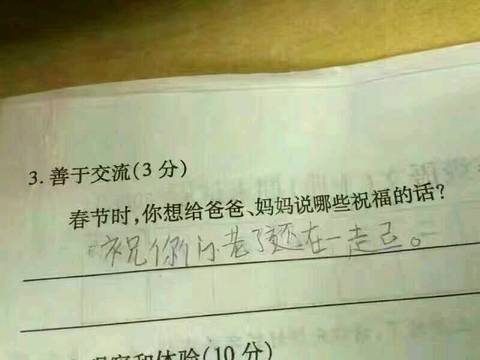 3.善于交流(3分)
春节时,你想给爸爸、妈妈说哪些祝福的话?
祝你们老了还在一走点。
观察和体验(10分)